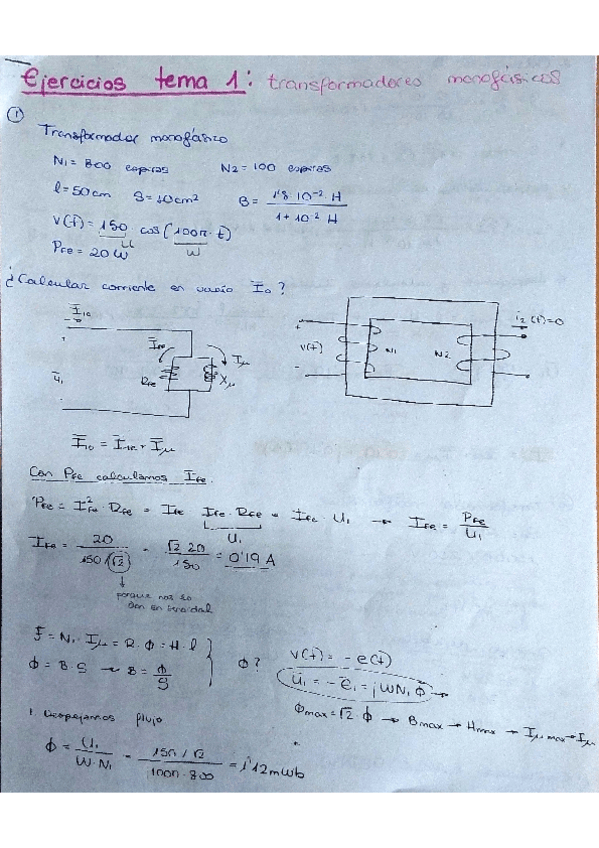 Ejercicios tema 1: transformadores monofásicos
①
Transformador monofásico
N1 = 800 espiras N2 = 100 espiras
l = 50 cm S = 10 cm² B = 1'8 · 10⁻² · H / 1 + 10⁻² H
V(t) = 150 cos (100π · t)
U W
PFe = 20 W
¿Calcular corriente en vacío I̅o?
I̅10
+
U̅1
-
I̅Fe
RFe
I̅μ
Xμ
+
V(t)
-
N1
N2
i2(t)=0
I̅10 = I̅Fe + I̅μ
Con PFe calculamos IFe.
PFe = I²Fe · RFe = IFe IFe · RFe = IFe · U1 → IFe = PFe / U1
U1
IFe = 20 / 150/√2 = √2 · 20 / 150 = 0'19 A
porque nos lo
dan en senoidal
F = N1 · Iμ = R · Φ = H · l
Φ = B · S → B = Φ / S
Φ?
V(t) = - e(t)
U̅1 = - e̅1 = jWN1 Φ̅
Φmax = √2 · Φ → Bmax → Hmax → Iμ max → Iμ
Despejamos flujo
Φ = U1 / W · N1 = 150/√2 / 100π · 800 = 0'42 mWb